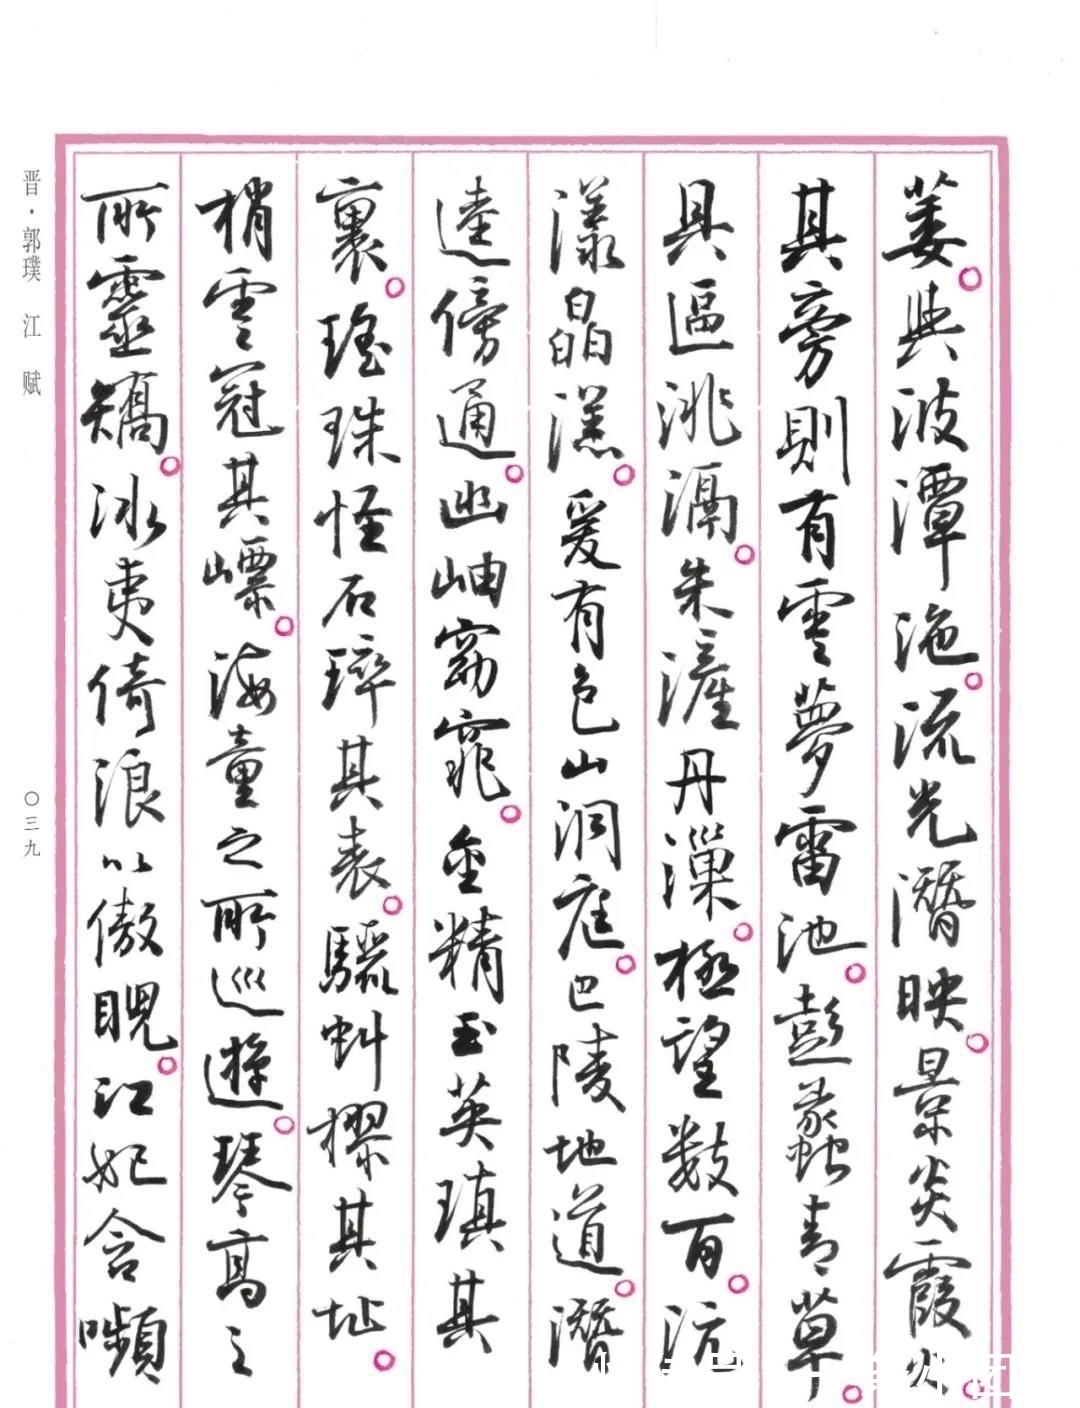 萋與波潭沲流光潛映景炎霞火
其旁則有雲夢雷池彭蠡青草
具區洮滆朱滻丹漅極望數百沆
漾皛溔爰有包山洞庭巴陵地道潛
逵傍通幽岫窈窕金精玉英瑱其
裏瑤珠怪石琗其表驪虯摎其址
梢雲冠其嶛海童之所巡遊琴高之
所靈矯冰夷倚浪以傲睨江妃含嚬
晋·郭璞 江 赋
〇三九